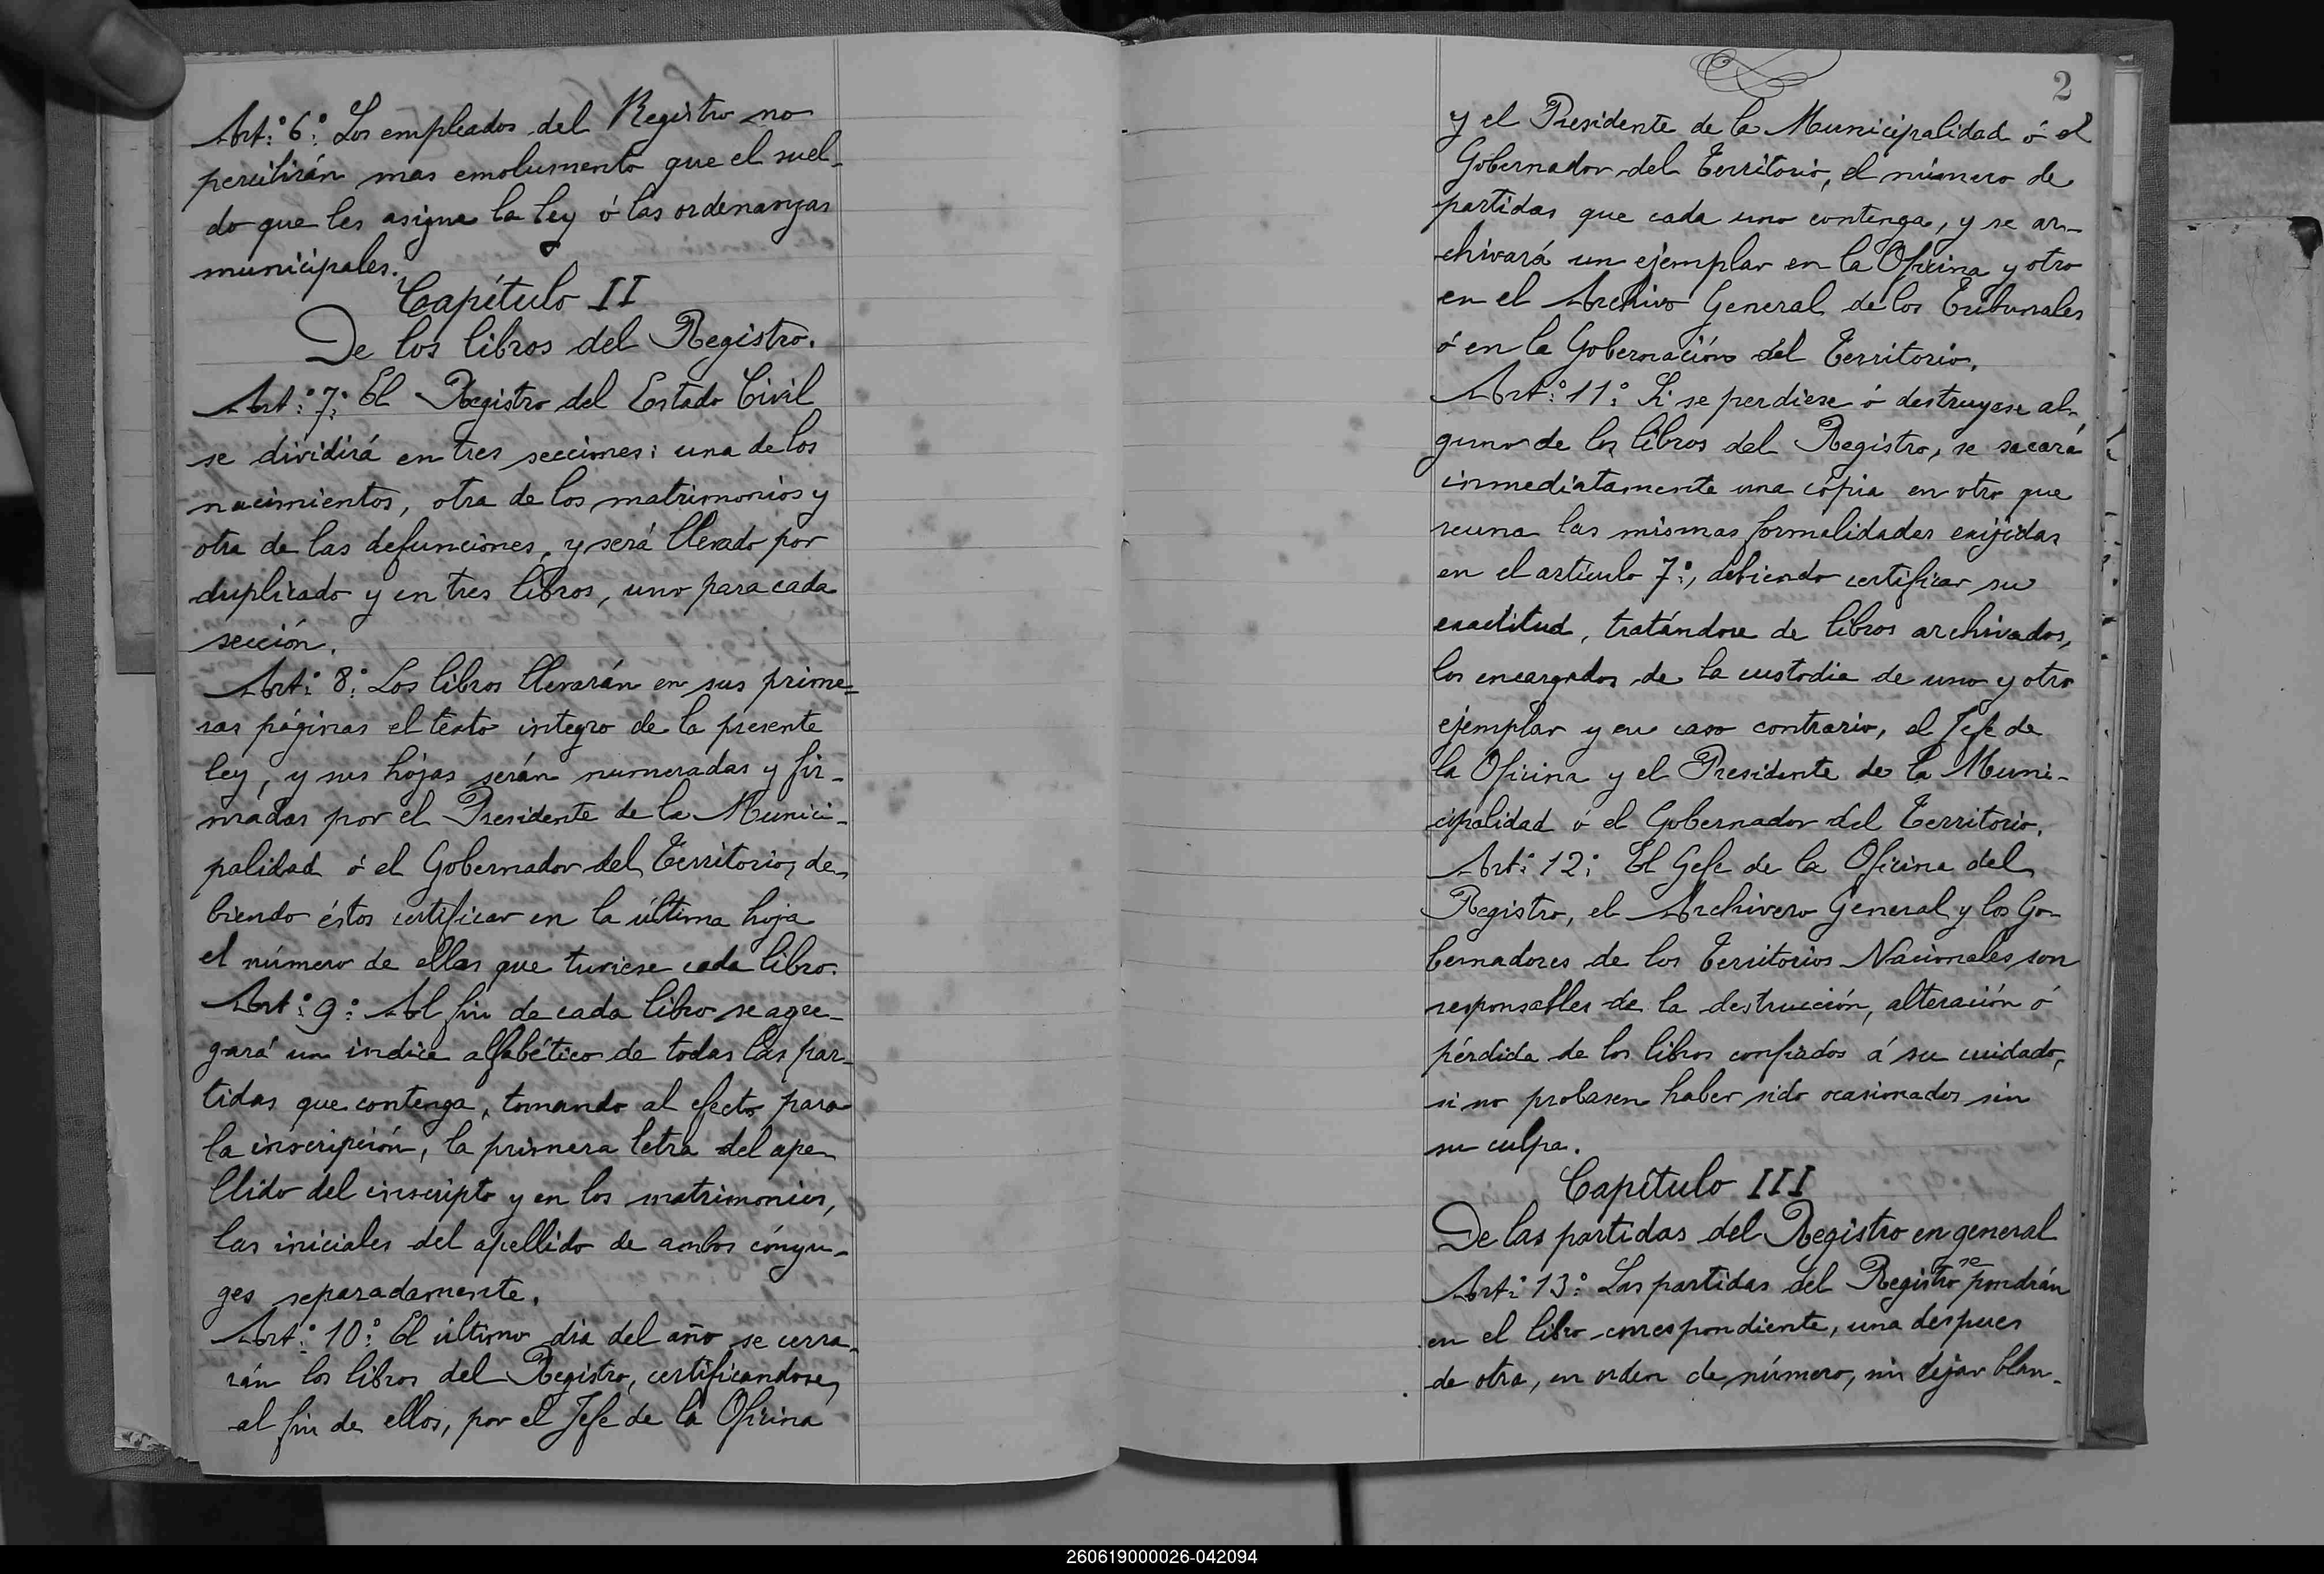 Art.º 6.º Los empleados del Registro no
percibirán mas emolumento que el suel-
do que les asigne la ley ó las ordenanzas
municipales.
Capítulo II
De los libros del Registro.
Art.º 7.º El Registro del Estado Civil
se dividirá en tres secciones: una de los
nacimientos, otra de los matrimonios y
otra de las defunciones, y será llevado por
duplicado y en tres libros, uno para cada
sección.
Art.º 8.º Los libros llevarán en sus prime-
ras páginas el texto integro de la presente
ley, y sus hojas serán numeradas y fir-
madas por el Presidente de la Munici-
palidad ó el Gobernador del Territorio, de-
biendo éstos certificar en la última hoja
el número de ellas que tuviese cada libro.
Art.º 9.º Al fin de cada libro se agre-
gará un indice alfabético de todas las par-
tidas que contenga, tomando al efecto para
la inscripción, la primera letra del ape-
llido del inscripto y en los matrimonios,
las iniciales del apellido de ambos cónyu-
ges separadamente.
Art.º 10.º El último dia del año se cerra-
rán los libros del Registro, certificandose,
al fin de ellos, por el Jefe de la Oficina
2
y el Presidente de la Municipalidad ó el
Gobernador del Territorio, el número de
partidas que cada uno contenga, y se ar-
chivará un ejemplar en la Oficina y otro
en el Archivo General de los Tribunales
ó en la Gobernación del Territorio.
Art.º 11.º Si se perdiese ó destruyese al-
guno de los libros del Registro, se sacará
inmediatamente una cópia en otro que
reuna las mismas formalidades exijidas
en el artículo 7.º, debiendo certificar su
exactitud, tratándose de libros archivados,
los encargados de la custodia de uno y otro
ejemplar y en caso contrario, el Jefe de
la Oficina y el Presidente de la Muni-
cipalidad ó el Gobernador del Territorio.
Art.º 12.º El Gefe de la Oficina del
Registro, el Archivero General y los Go-
bernadores de los Territorios Nacionales son
responsables de la destrucción, alteración ó
pérdida de los libros confiados á su cuidado,
si no probasen haber sido ocasionados sin
su culpa.
Capítulo III
De las partidas del Registro en general
Art.º 13.º Las partidas del Registro se pondrán
en el libro correspondiente, una despues
de otra, en orden de número, sin dejar blan-
260619000026-042094